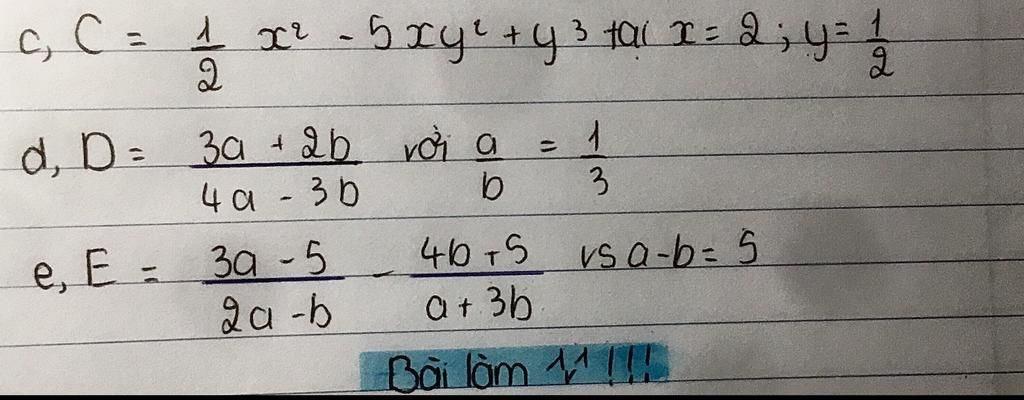 c, C = 1/2 x² - 5xy² + y³ tại x = 2 ; y = 1/2
d, D = (3a + 2b)/(4a - 3b) với a/b = 1/3
e, E = (3a - 5)/(2a - b) - (4b + 5)/(a + 3b) vs a - b = 5
Bài làm !!!